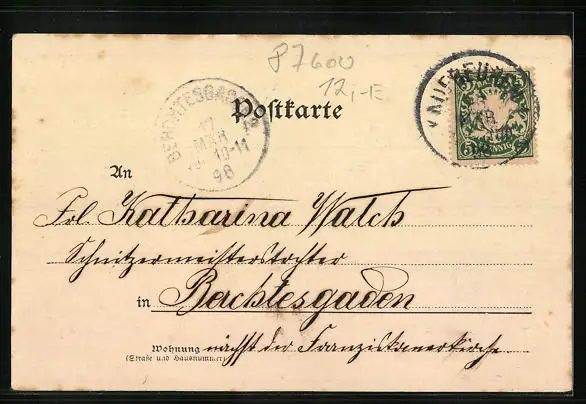 87600
12,-E
Postkarte
BERCHTESGADEN
17
MÄR
10-11
98
KAUFBEUREN
5 PFENNIG
An
Frl. Katharina Walch
Schnitzermeisterstochter
in Berchtesgaden
Wohnung nächst der Franziskanerkirche
(Straße und Hausnummer)